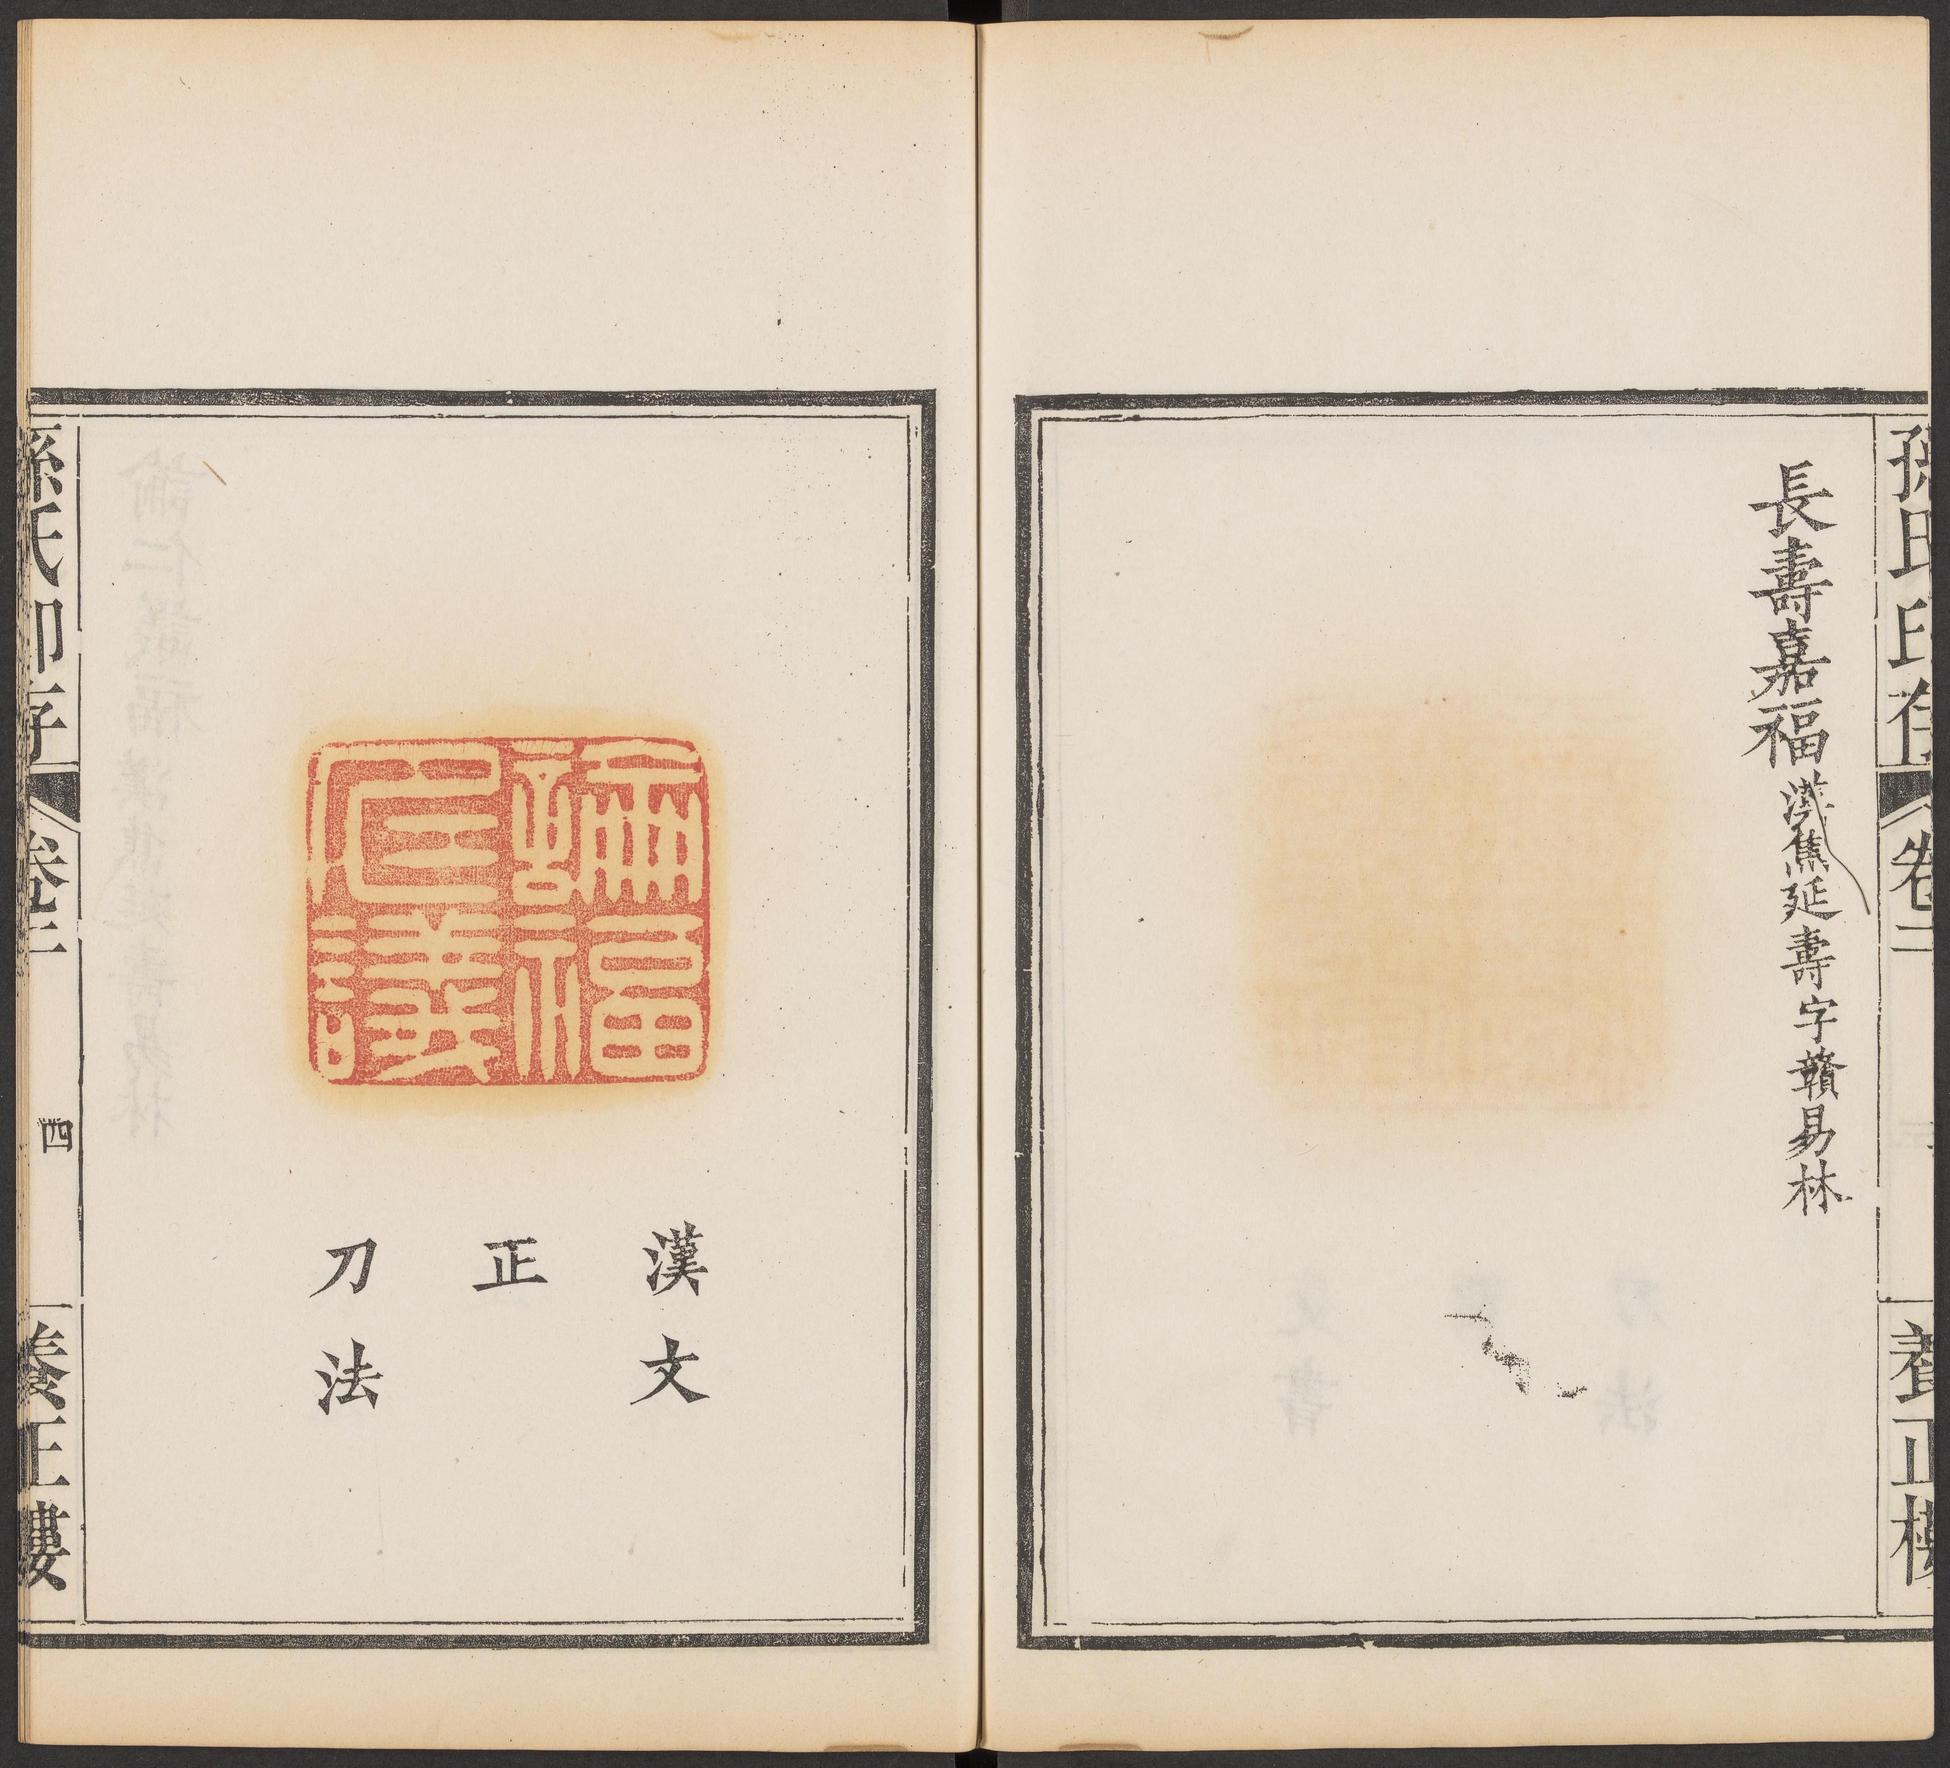 孫氏印存 卷二 養正樓
長壽嘉福 漢焦延壽字贛易林
福
仁議
漢文
正
刀法
孫氏印存 卷二 四 養正樓